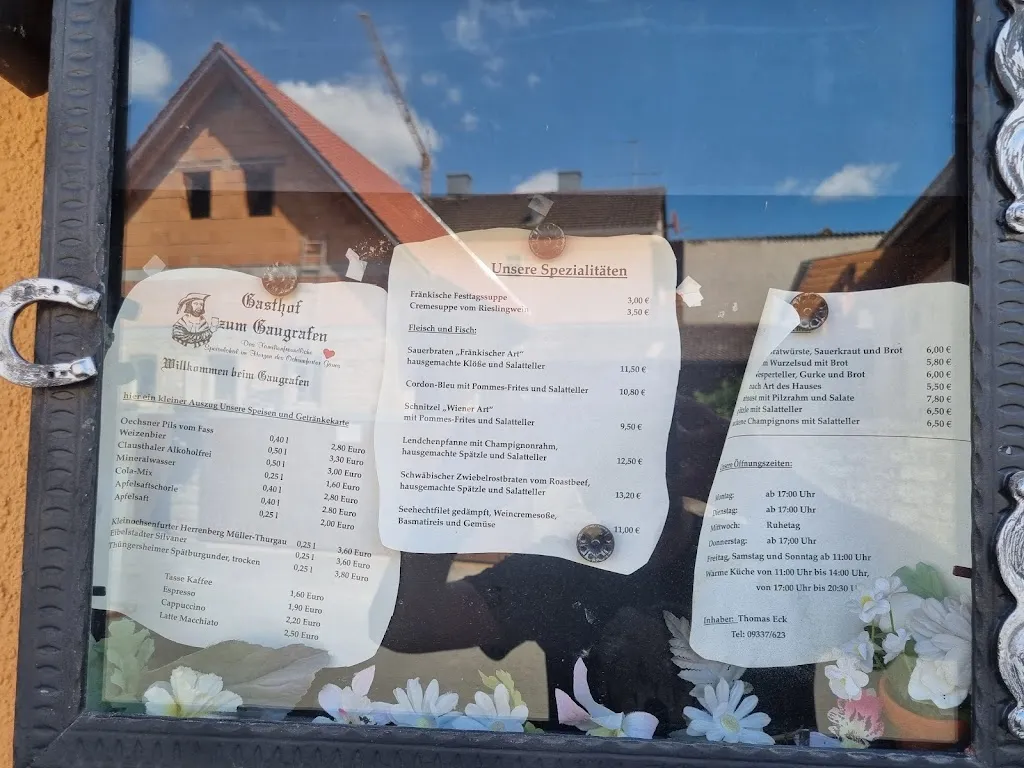 Gasthof
zum Gaugrafen
Das Familienfreundliche
Speiselokal im Herzen des Ochsenfurter Gaues
Willkommen beim Gaugrafen
hier ein kleiner Auszug Unsere Speisen und Getränkekarte
Oechsner Pils vom Fass 0,40 l 2,80 Euro
Weizenbier 0,50 l 3,30 Euro
Clausthaler Alkoholfrei 0,50 l 3,00 Euro
Mineralwasser 0,25 l 1,60 Euro
Cola-Mix 0,40 l 2,80 Euro
Apfelsaftschorle 0,40 l 2,80 Euro
Apfelsaft 0,25 l 2,00 Euro
Kleinochsenfurter Herrenberg Müller-Thurgau 0,25 l 3,60 Euro
Eibelstadter Silvaner 0,25 l 3,60 Euro
Thüngersheimer Spätburgunder, trocken 0,25 l 3,80 Euro
Tasse Kaffee 1,60 Euro
Espresso 1,90 Euro
Cappuccino 2,20 Euro
Latte Macchiato 2,50 Euro
Unsere Spezialitäten
Fränkische Festtagssuppe 3,00 €
Cremesuppe vom Rieslingwein 3,50 €
Fleisch und Fisch:
Sauerbraten „Fränkischer Art"
hausgemachte Klöße und Salatteller 11,50 €
Cordon-Bleu mit Pommes-Frites und Salatteller 10,80 €
Schnitzel „Wiener Art"
mit Pommes-Frites und Salatteller 9,50 €
Lendchenpfanne mit Champignonrahm,
hausgemachte Spätzle und Salatteller 12,50 €
Schwäbischer Zwiebelrostbraten vom Roastbeef,
hausgemachte Spätzle und Salatteller 13,20 €
Seehechtfilet gedämpft, Weincremesoße,
Basmatireis und Gemüse 11,00 €
ratwürste, Sauerkraut und Brot 6,00 €
Wurzelsud mit Brot 5,80 €
esperteller, Gurke und Brot 6,00 €
nach Art des Hauses 5,50 €
mit Pilzrahm und Salate 7,80 €
mit Salatteller 6,50 €
Champignons mit Salatteller 6,50 €
Unsere Öffnungszeiten:
Montag: ab 17:00 Uhr
Dienstag: ab 17:00 Uhr
Mittwoch: Ruhetag
Donnerstag: ab 17:00 Uhr
Freitag, Samstag und Sonntag ab 11:00 Uhr
Warme Küche von 11:00 Uhr bis 14:00 Uhr,
von 17:00 Uhr bis 20:30 U
Inhaber: Thomas Eck
Tel: 09337/623